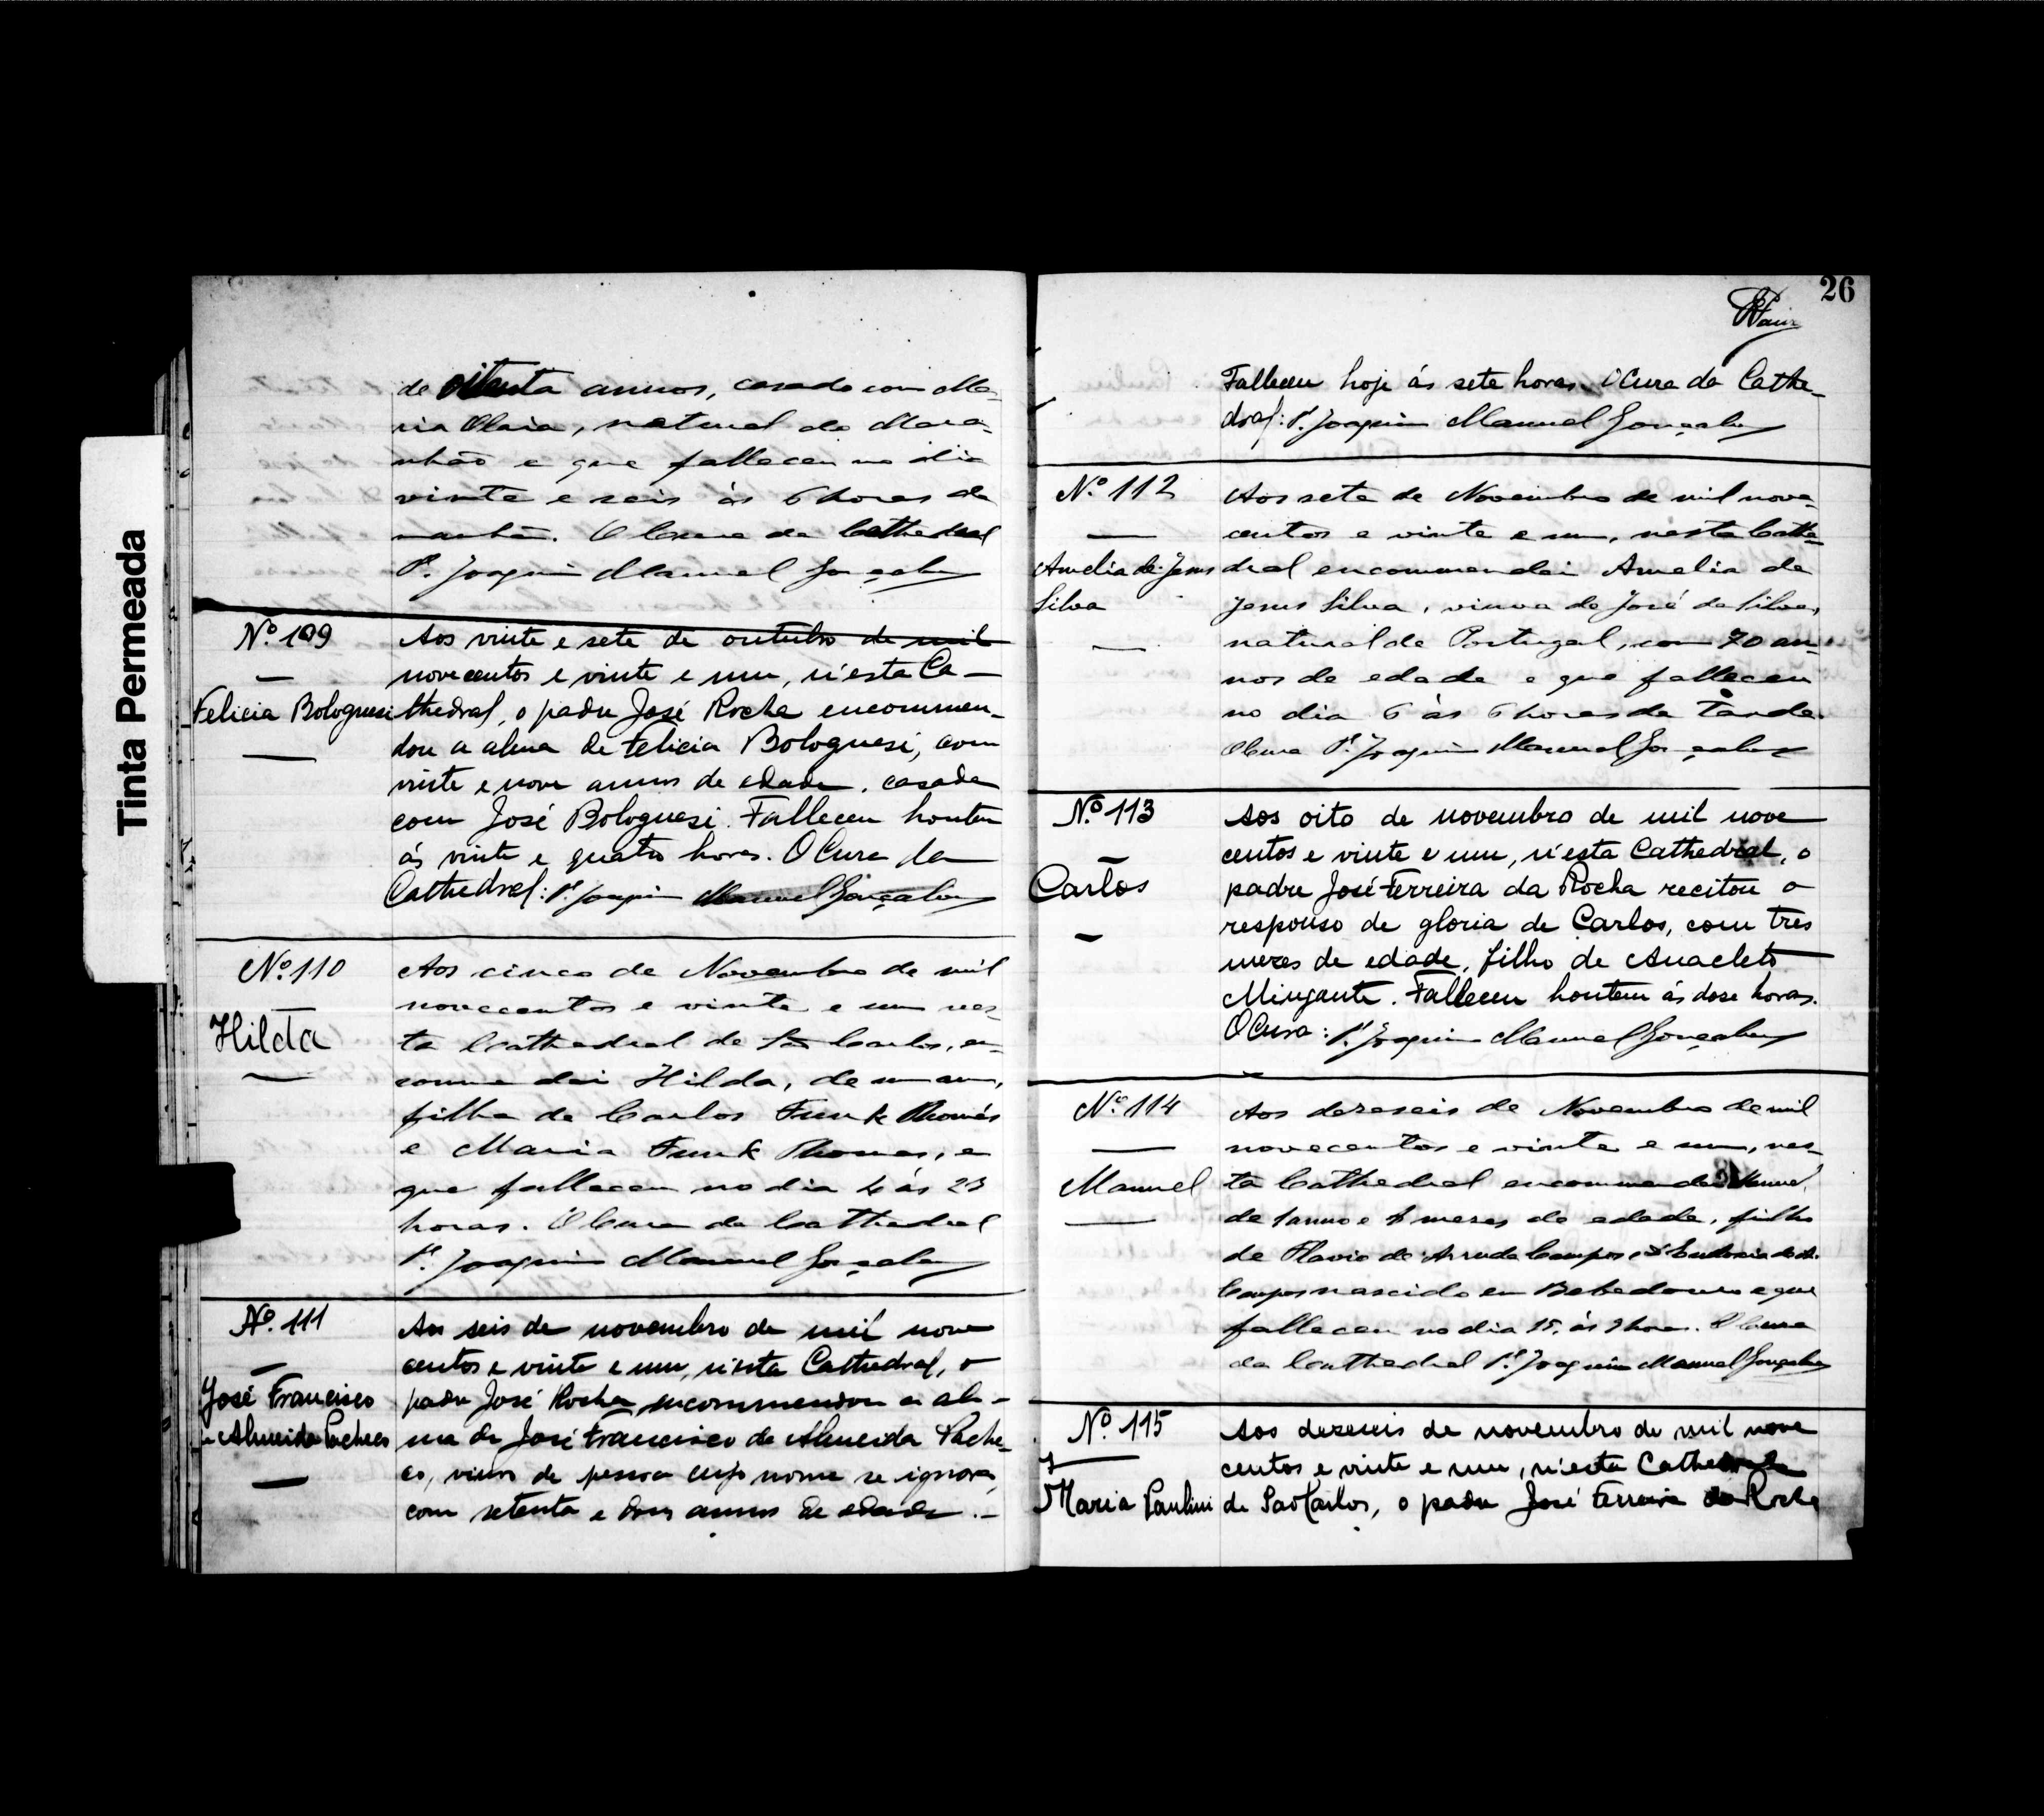 Tinta Permeada
de oitenta annos, casado com Ma-
ria Olaia, natural do Mara-
nhão e que falleceu no dia
vinte e seis às 6 horas da
manhã. O Cura da Cathedral
Pe. Joaquim Manuel Gonçalves
Nº 109
Felicia Bolognesi
Aos vinte e sete de outubro de mil
novecentos e vinte e um, n'esta Ca-
thedral, o padre José Rocha encommen-
dou a alma de Felicia Bolognesi, com
vinte e nove annos de edade, casada
com José Bolognesi. Falleceu hontem
ás vinte e quatro horas. O Cura da
Cathedral: Pe. Joaquim Manuel Gonçalves
Nº 110
Hilda
Aos cinco de Novembro de mil
novecentos e vinte e um nes-
ta Cathedral de São Carlos, en-
commendei Hilda, de um anno,
filha de Carlos Funk Thomás
e Maria Funk Thomas, e
que falleceu no dia 4 ás 23
horas. O Cura da Cathedral
Pe. Joaquim Manuel Gonçalves
Nº 111
José Francisco
Almeida Pacheco
Aos seis de novembro de mil nove
centos e vinte e um, n'esta Cathedral, o
padre José Rocha encommendou a al-
ma de José Francisco de Almeida Pache-
co, viuvo de pessoa cujo nome se ignora,
com setenta e dous annos de edade.
26
Falleceu hoje ás sete horas. O Cura da Cathe-
dral: Pe. Joaquim Manuel Gonçalves
Nº 112
Amelia de Jesus
Silva
Aos sete de Novembro de mil nove-
centos e vinte e um, nesta Cathe-
dral encommendei Amelia de
Jesus Silva, viuva de José da Silva,
natural de Portugal, com 70 an-
nos de edade e que falleceu
no dia 6 às 6 horas da tarde.
O Cura Pe. Joaquim Manuel Gonçalves
Nº 113
Carlos
Aos oito de novembro de mil nove
centos e vinte e um, n'esta Cathedral, o
padre José Ferreira da Rocha recitou o
responso de gloria de Carlos, com tres
mezes de edade, filho de Anacleto
Mingante. Falleceu hontem ás dose horas.
O Cura: Pe. Joaquim Manuel Gonçalves
Nº 114
Manuel
Aos dezeseis de Novembro de mil
novecentos e vinte e um, nes-
ta Cathedral encommendei Manuel,
de 1 anno e mezes de edade, filho
de Flavio de Arruda Campos e
Campos nascido em Bebedouro e que
falleceu no dia 15, ás 9 horas. O Cura
da Cathedral Pe. Joaquim Manuel Gonçalves
Nº 115
Maria Paulini
Aos dezeseis de novembro de mil nove
centos e vinte e um, n'esta Cathedral
de São Carlos, o padre José Ferreira da Rocha